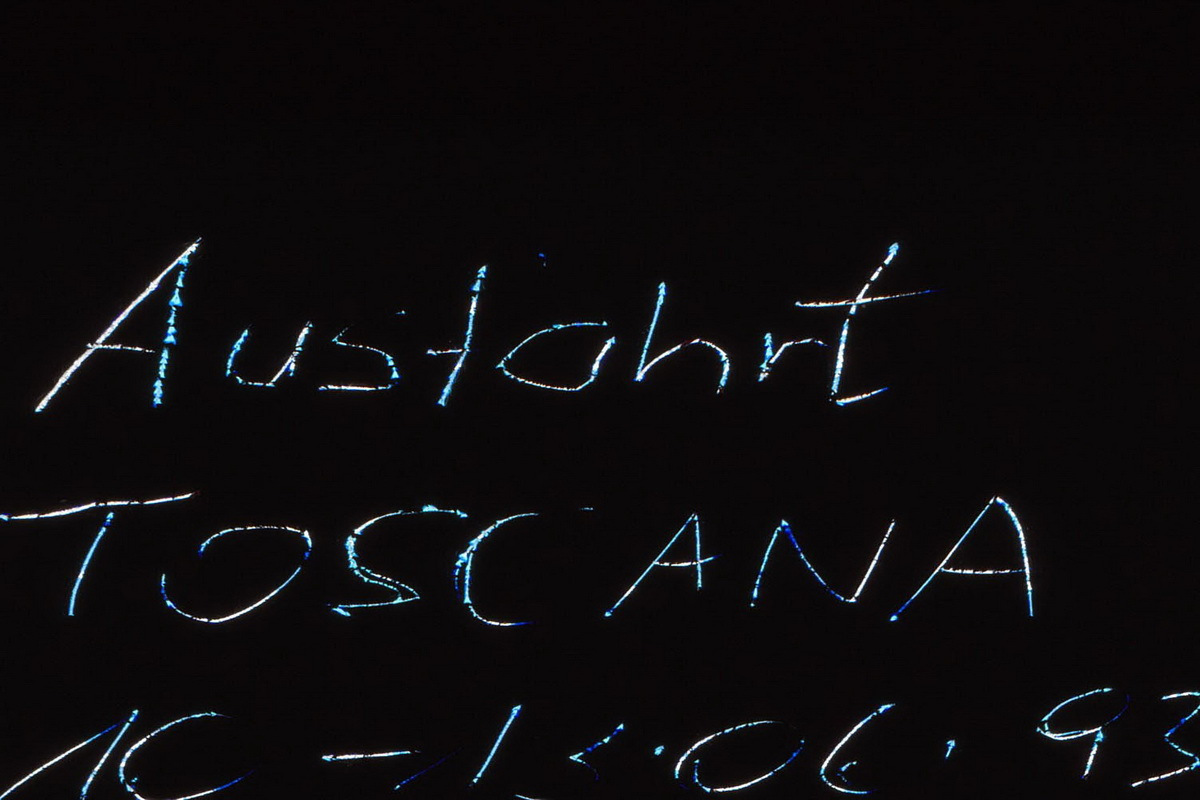 Ausfahrt
TOSCANA
10 - 13.06.93